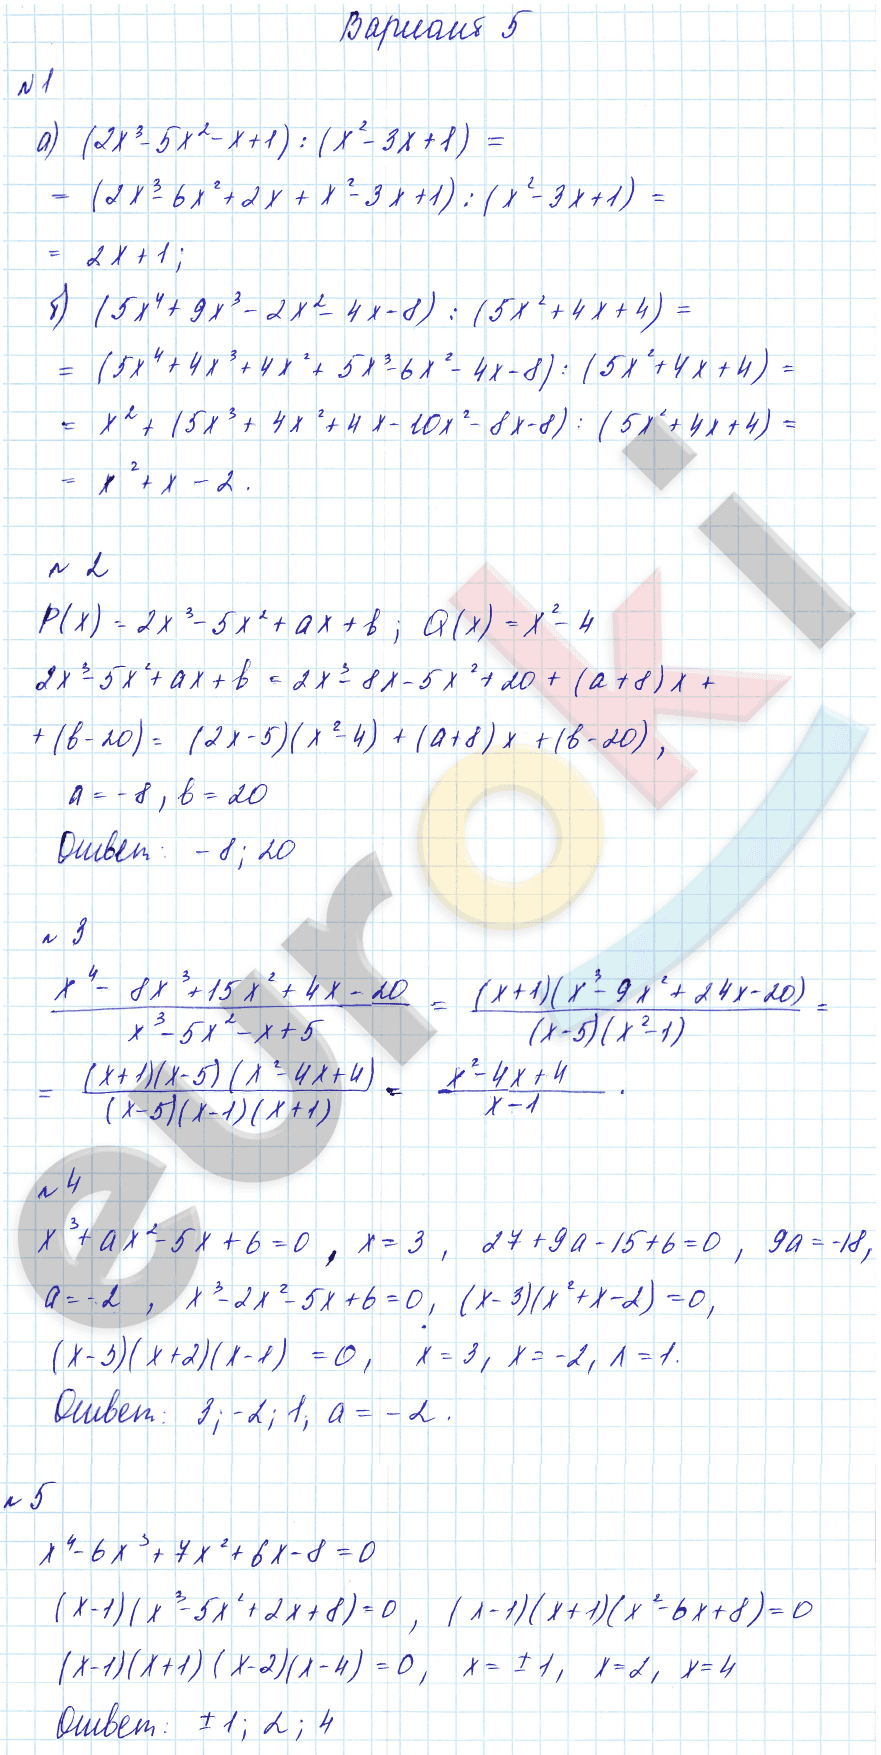 Вариант 5
№1
а) (2x³-5x²-x+1):(x²-3x+1) =
= (2x³-6x²+2x+x²-3x+1):(x²-3x+1) =
= 2x+1;
б) (5x⁴+9x³-2x²-4x-8):(5x²+4x+4) =
= (5x⁴+4x³+4x²+5x³-6x²-4x-8):(5x²+4x+4) =
= x²+(5x³+4x²+4x-10x²-8x-8):(5x²+4x+4) =
= x²+x-2.
№2
P(x) = 2x³-5x²+ax+b; Q(x) = x²-4
2x³-5x²+ax+b = 2x³-8x-5x²+20+(a+8)x+
+(b-20) = (2x-5)(x²-4)+(a+8)x+(b-20),
a=-8, b=20
Ответ: -8; 20
№3
(x⁴-8x³+15x²+4x-20)/(x³-5x²-x+5) = ((x+1)(x³-9x²+24x-20))/((x-5)(x²-1)) =
= ((x+1)(x-5)(x²-4x+4))/((x-5)(x-1)(x+1)) = (x²-4x+4)/(x-1).
№4
x³+ax²-5x+6=0, x=3, 27+9a-15+6=0, 9a=-18,
a=-2, x³-2x²-5x+6=0, (x-3)(x²+x-2)=0,
(x-3)(x+2)(x-1)=0, x=3, x=-2, x=1.
Ответ: 3; -2; 1, a=-2.
№5
x⁴-6x³+7x²+6x-8=0
(x-1)(x³-5x²+2x+8)=0, (x-1)(x+1)(x²-6x+8)=0
(x-1)(x+1)(x-2)(x-4)=0, x=±1, x=2, x=4
Ответ: ±1; 2; 4
euroki